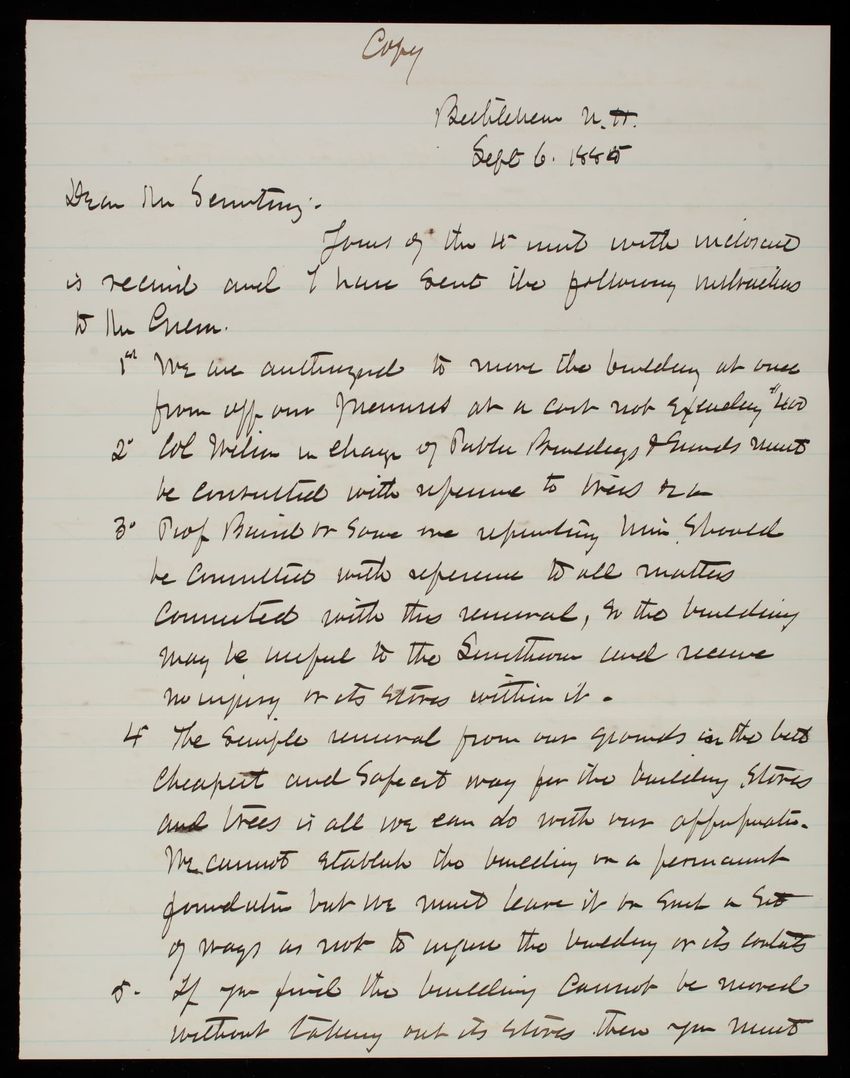 Copy
Bethlehem N.H.
Sept 6. 1885
Dear Mr Secretary:
Yours of the 4 inst with inclosure
is received and I have sent the following instructions
to Mr Green.
1st We are authorized to move the building at once
from off our premises at a cost not exceeding $400
2" Col Wilson in charge of Public Buildings & Grounds must
be consulted with reference to trees &c
3" Prof Baird or some one representing him should
be consulted with reference to all matters
connected with this removal, so the building
may be useful to the Smithsonian and receive
no injury or its stores within it.
4 The simple removal from our grounds in the best
cheapest and safest way for the building, stores
and trees is all we can do with our appropriation.
We cannot establish the building on a permanent
foundation but we must leave it on such a set
of ways as not to injure the building or its contents
5. If you find the building cannot be moved
without taking out its stores then you must